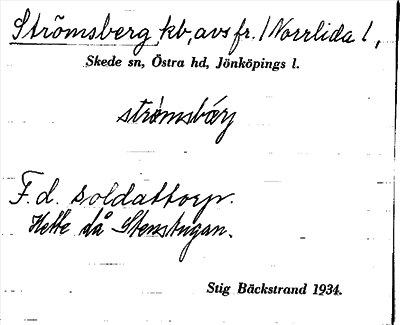 Strömsberg kb, avs fr. 1 Norrlida 1,
Skede sn, Östra hd, Jönköpings l.
strömsbärj
F. d. soldattorp.
Hette då Stenstugan.
Stig Bäckstrand 1934.